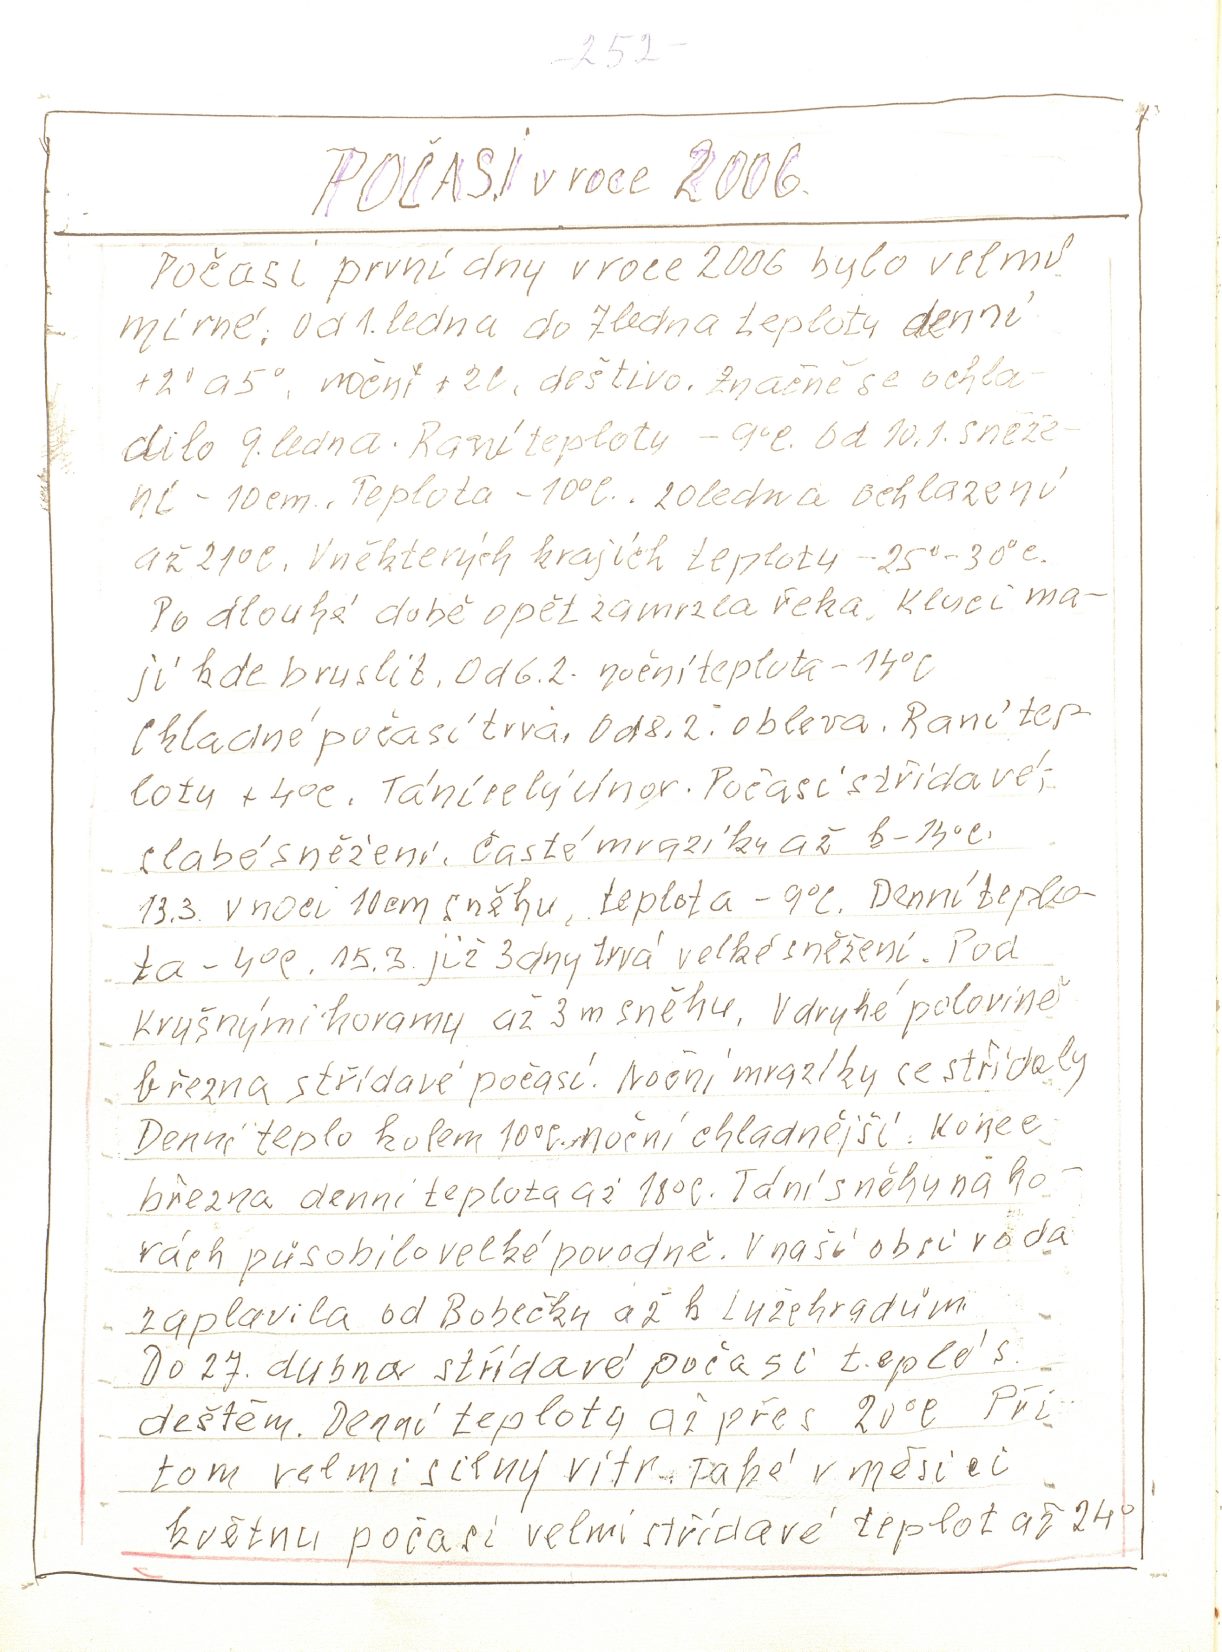 -252-
POČASÍ v roce 2006.
Počasí první dny v roce 2006 bylo velmi
mírné. Od 1. ledna do 7 ledna teploty denní
+2° a 5°, noční +2C, deštivo. Značně se ochla-
dilo 9. ledna. Raní teploty -9°C. Od 10.1. sněže-
ní - 10cm. Teplota -10°C. 20 ledna ochlazení
až 21°C. V některých krajích teploty -25°-30°C.
Po dlouhé době opět zamrzla řeka. Kluci ma-
jí kde bruslit. Od 6.2. noční teplota -14°C
Chladné počasí trvá. Od 8.2. obleva. Raní tep-
loty +4°C. Tání celý únor. Počasí střídavé,
slabé sněžení. Časté mrazíky až k -13°C.
13.3. v noci 10cm sněhu, teplota -9°C. Denní teplo-
ta -4°C. 15.3. již 3 dny trvá velké sněžení. Pod
Krušnými horamy až 3 m sněhu. V druhé polovině
března střídavé počasí. Noční mrazíky se střídaly
Denní teplo kolem 10°C noční chladnější. Konec
března denní teplota až 18°C. Tání sněhu na ho-
rách působilo velké povodně. V naší obci voda
zaplavila od Bobečky až k Lužehradům
Do 27. dubna střídavé počasí teplé s
deštěm. Denní teploty až přes 20°C Při
tom velmi silný vítr. Také v měsíci
květnu počasí velmi střídavé teplot až 24°